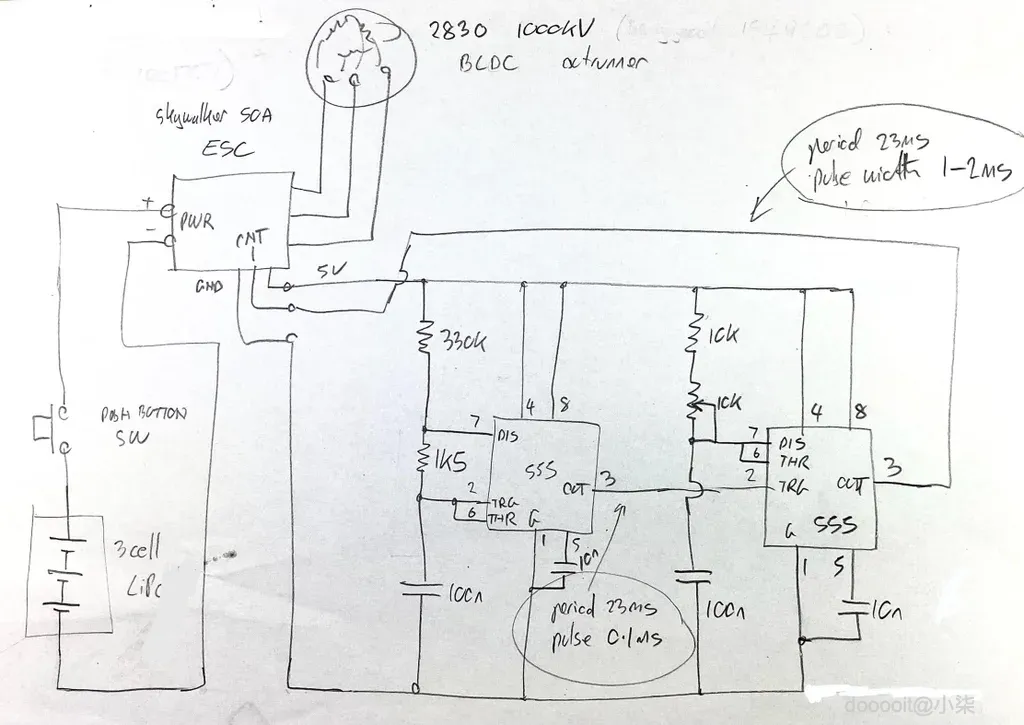 2830 1000kV
BLDC outrunner
skywalker 50A
ESC
period 23ms
pulse width 1-2ms
+
-
PWR
CNT
GND
5V
330k
10k
10k
4 8
4 8
7
DIS
1k5
555
OUT
3
2
TRG
6
THR
G
1
5
10n
7
DIS
6
THR
2
TRG
OUT
3
555
G
1
5
10n
PUSH BUTTON
SW
3 cell
LiPo
100n
100n
period 23ms
pulse 0.1ms
dooooit@小柒